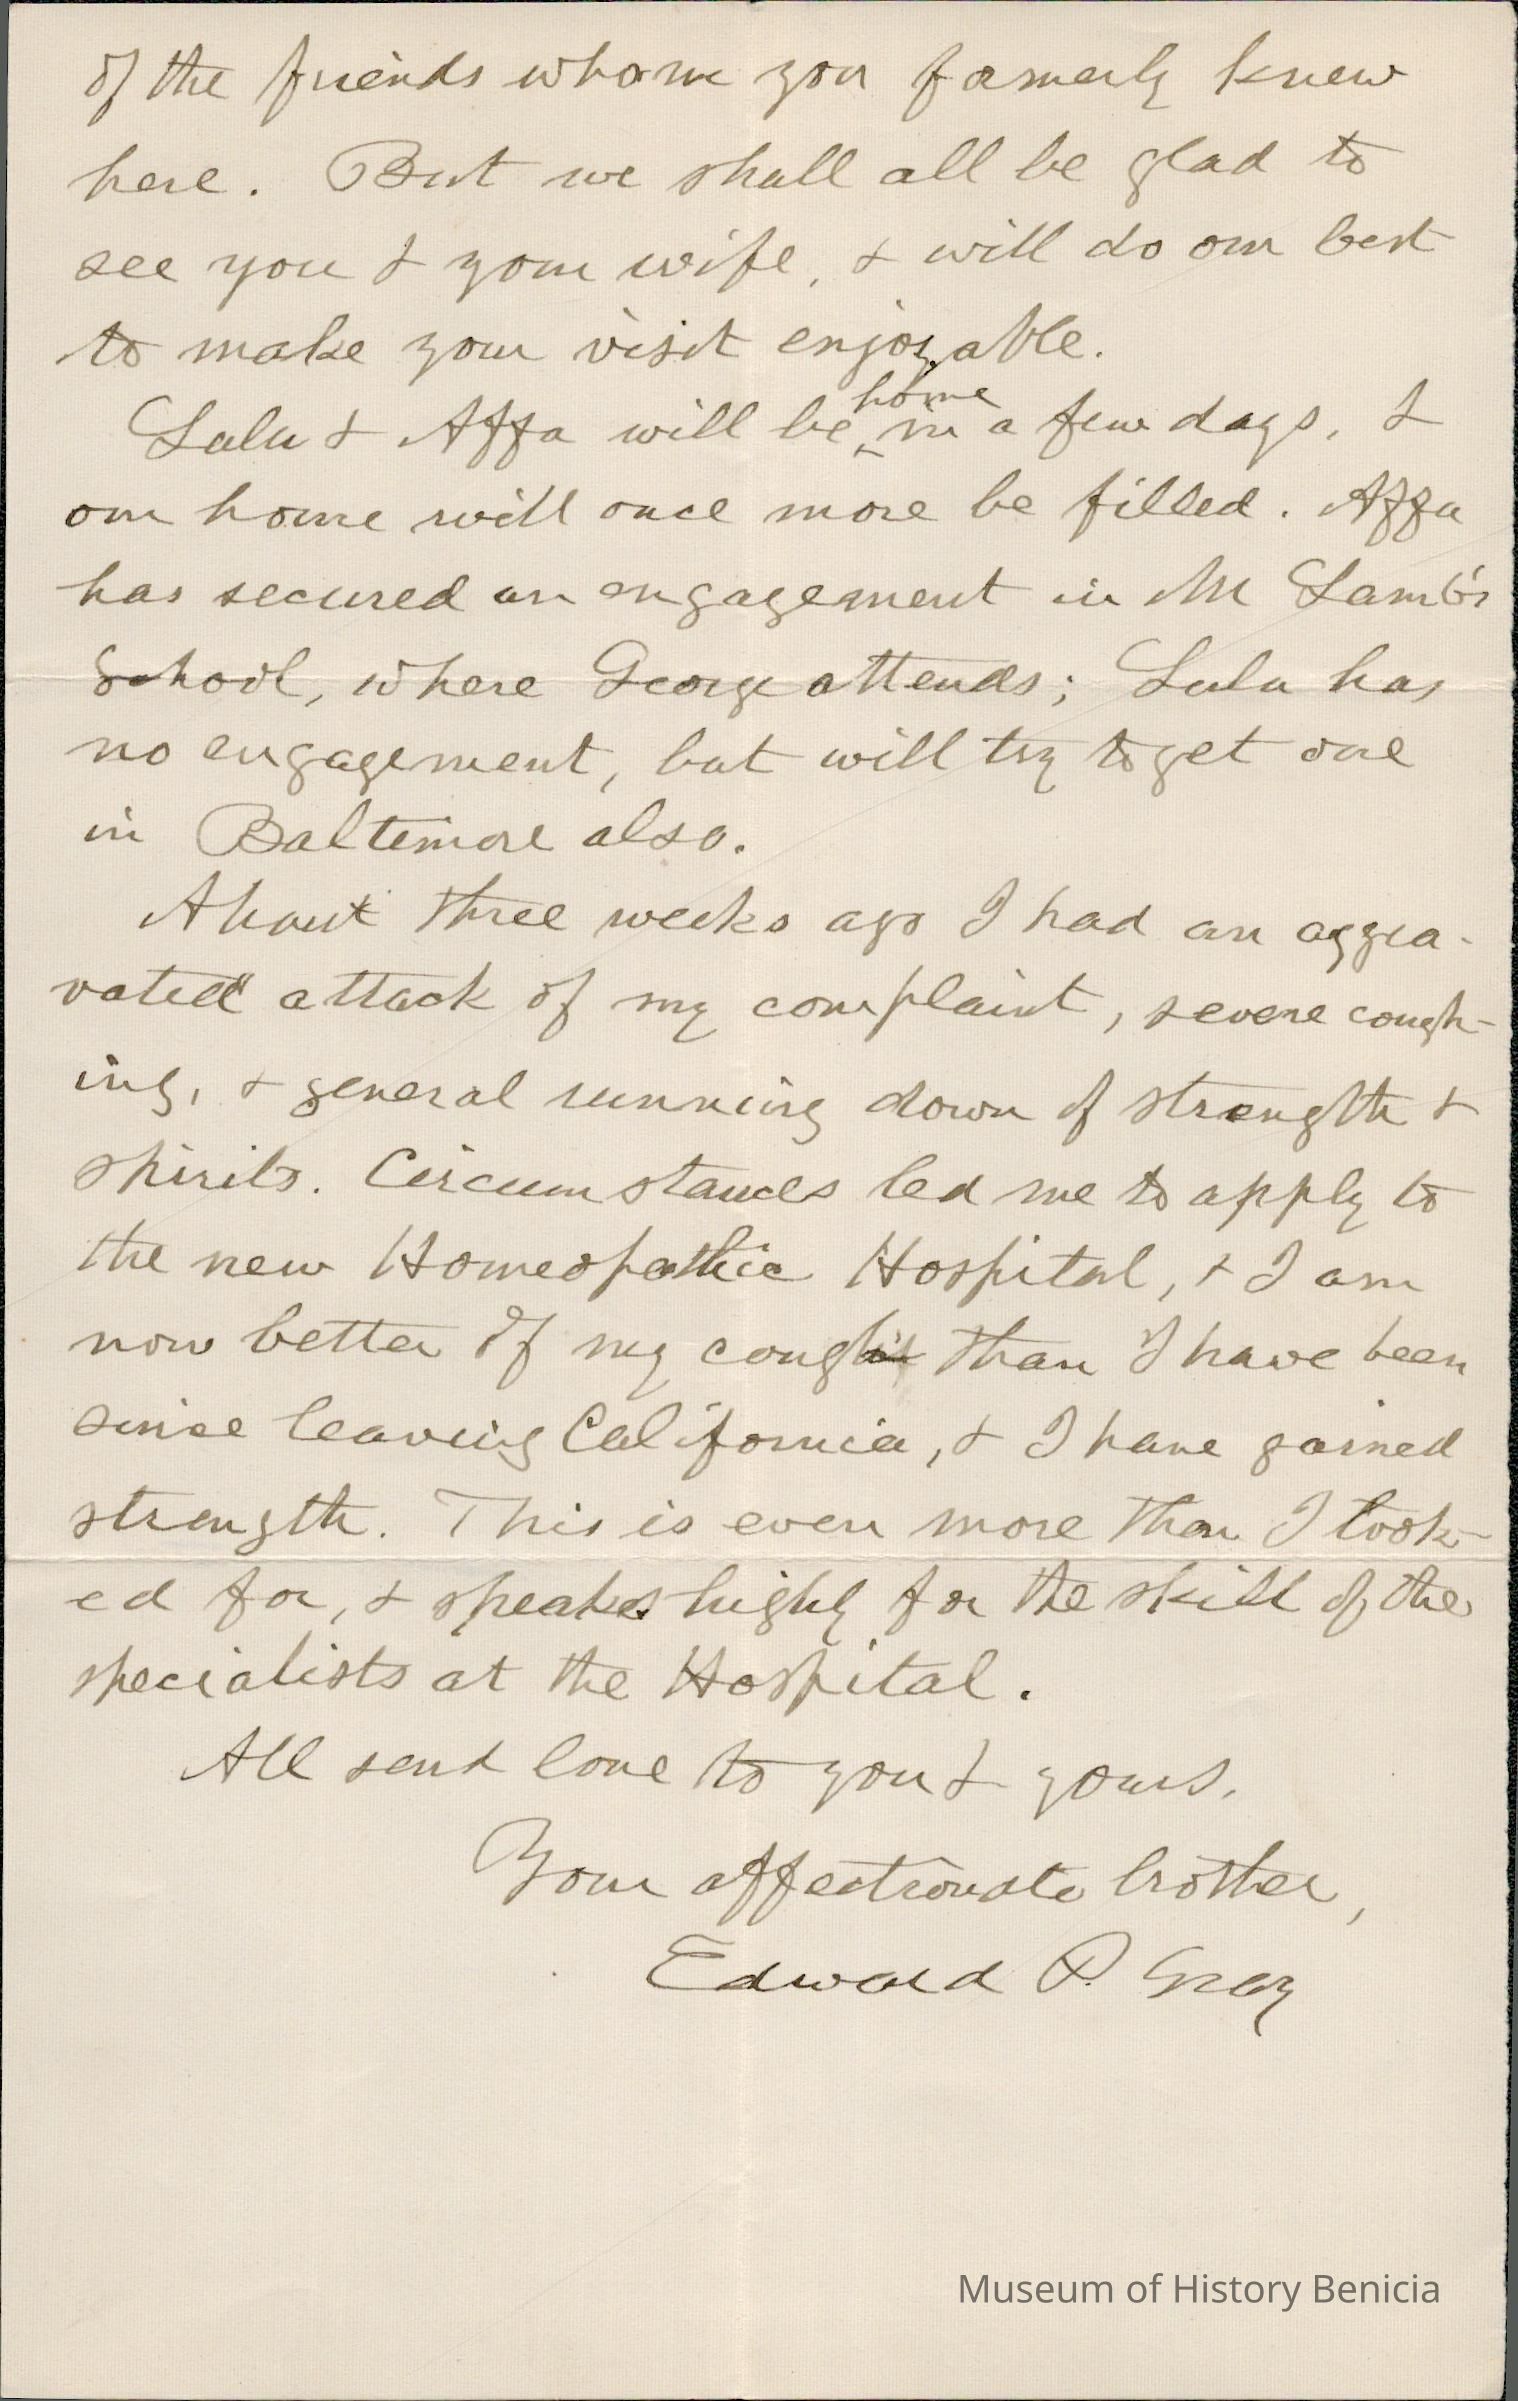 of the friends whom you formerly knew
here. But we shall all be glad to
see you & your wife, & will do our best
to make your visit enjoyable.
home
Lulu & Affa will be in a few days, &
our home will once more be filled. Affa
has secured an engagement in Mr Lamb's
School, where George attends; Lulu has
no engagement, but will try to get one
in Baltimore also.
About three weeks ago I had an aggra-
vated attack of my complaint, severe cough-
ing, & general running down of strength &
spirits. Circumstances led me to apply to
the new Homeopathic Hospital, & I am
now better of my cough than I have been
since leaving California, & I have gained
strength. This is even more than I look-
ed for, & speaks highly for the skill of the
specialists at the Hospital.
All send love to you & yours.
Your affectionate brother,
Edward P. Gray
Museum of History Benicia